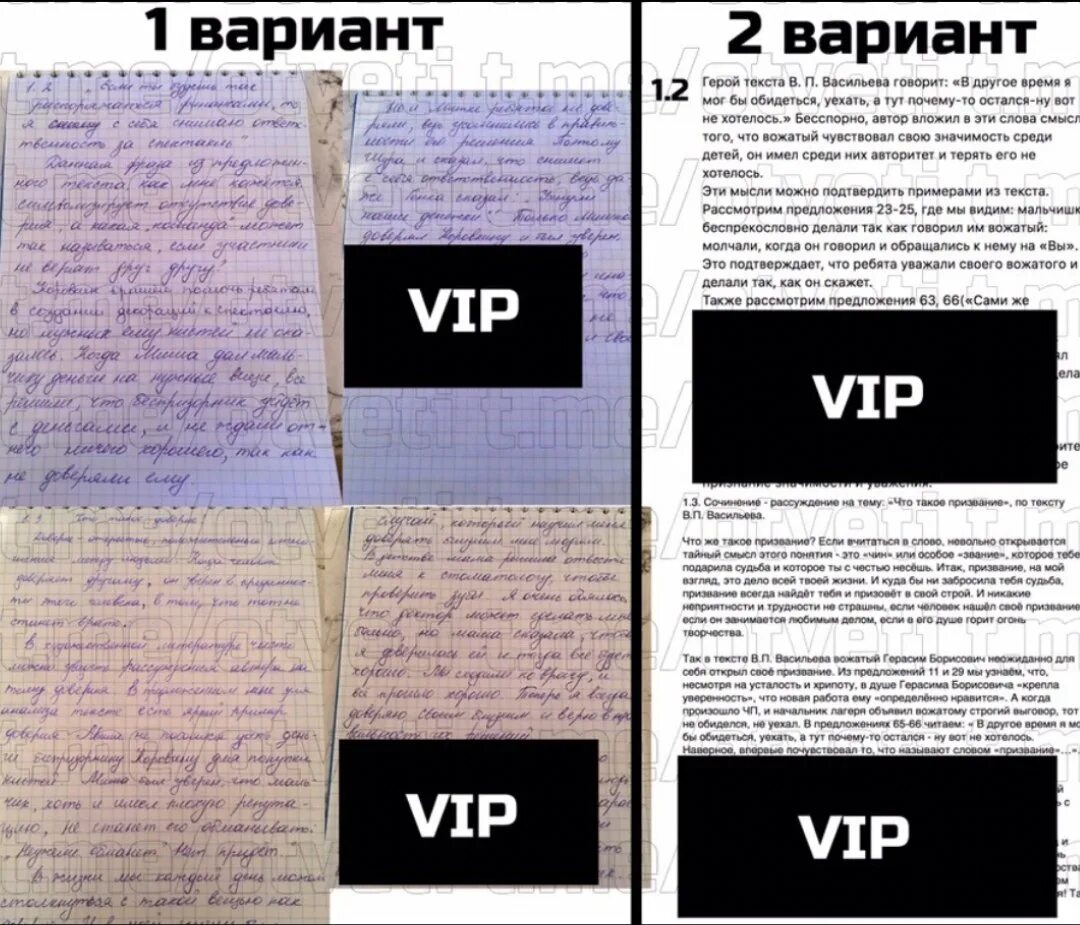 1 вариант
1.2 „Если ты будешь так
распоряжаться финансами, то
я с себя снимаю ответ-
ственность за спектакль"
Данная фраза из предложен-
ного текста, как мне кажется,
символизирует отсутствие дове-
рия, а какая „команда" может
так называться, если участники
не верят друг другу?
Коровин пришел помочь ребятам
в создании декораций к спектаклю,
но нужных ему кистей не ока-
залось. Когда Миша дал маль-
чику деньги на нужные вещи, все
решили, что беспризорник уйдет
с деньгами, и не ждали от
него ничего хорошего, так как
не доверяли ему.
Но и Мишке ребята не дове-
ряли, ведь усомнились в правиль-
ности его решения. Поэтому
Шура и сказал, что снимет
с себя ответственность, ведь да-
же Генка сказал: „
наши денежки". Только Миша
доверял Коровину и был уверен,
VIP
1.3 Что такое доверие?
Доверие - открытые, положительные
между людьми. Когда человек
доверяет другому, он уверен в
этого человека, в том, что тот не
станет врать.
В художественной литературе часто
можно увидеть рассуждения автора на
тему доверия. В предложенном мне для
анализа тексте есть яркий пример
доверия. Миша не дать день-
ги беспризорнику Коровину для покупки
кистей. Миша был уверен, что маль-
чик, хоть и имел плохую репута-
цию, не станет его обманывать:
„Неужели обманет? Нет, придет".
В жизни мы каждый день можем
столкнуться с такой вещью как
случай, который научил меня
доверять близким мне людям.
В детстве мама решила отвести
меня к стоматологу, чтобы
проверить зубы. Я очень боялась,
что доктор может сделать мне
больно, но мама сказала, что
я доверилась ей и тогда всё будет
хорошо. Мы сходили ко врачу, и
всё прошло хорошо. Теперь я всегда
доверяю своим близким и верю в пра-
вильность их решений
VIP
2 вариант
1.2
Герой текста В. П. Васильева говорит: «В другое время я
мог бы обидеться, уехать, а тут почему-то остался-ну вот
не хотелось.» Бесспорно, автор вложил в эти слова смысл
того, что вожатый чувствовал свою значимость среди
детей, он имел среди них авторитет и терять его не
хотелось.
Эти мысли можно подтвердить примерами из текста.
Рассмотрим предложения 23-25, где мы видим: мальчишк
беспрекословно делали так как говорил им вожатый:
молчали, когда он говорил и обращались к нему на «Вы».
Это подтверждает, что ребята уважали своего вожатого и
делали так, как он скажет.
Также рассмотрим предложения 63, 66(«Сами же
VIP
признание значимости и уважения.
1.3. Сочинение - рассуждение на тему: «Что такое призвание», по тексту
В.П. Васильева.
Что же такое призвание? Если вчитаться в слово, невольно открывается
тайный смысл этого понятия - это «чин» или особое «звание», которое тебе
подарила судьба и которое ты с честью несёшь. Итак, призвание, на мой
взгляд, это дело всей твоей жизни. И куда бы ни забросила тебя судьба,
призвание всегда найдёт тебя и призовёт в свой строй. И никакие
неприятности и трудности не страшны, если человек нашёл своё призвание
если он занимается любимым делом, если в его душе горит огонь
творчества.
Так в тексте В.П. Васильева вожатый Герасим Борисович неожиданно для
себя открыл своё призвание. Из предложений 11 и 29 мы узнаём, что,
несмотря на усталость и хрипоту, в душе Герасима Борисовича «крепла
уверенность», что новая работа ему «определённо нравится». А когда
произошло ЧП, и начальник лагеря объявил вожатому строгий выговор, тот
не обиделся, не уехал. В предложениях 65-66 читаем: « В другое время я мо
бы обидеться, уехать, а тут почему-то остался - ну вот не хотелось.
Наверное, впервые почувствовал то, что называют словом «призвание…».
VIP